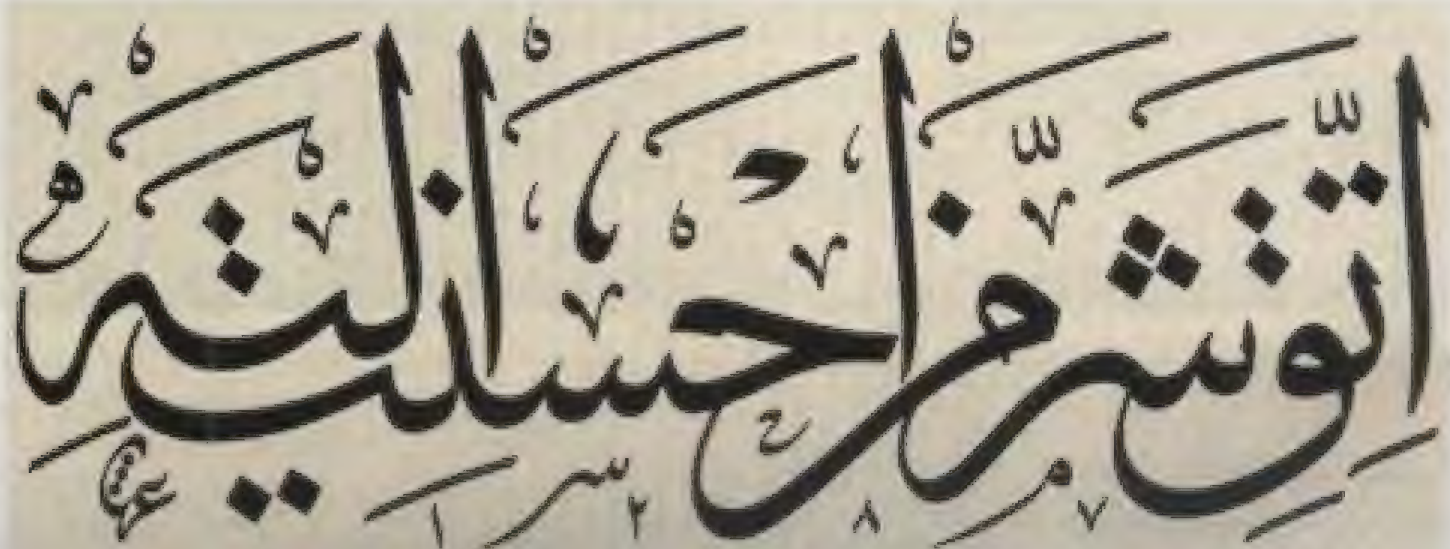 اِتَّقِ شَرَّ مَنْ اَحْسَنْتَ اِلَيْهِ
١٢٨٧